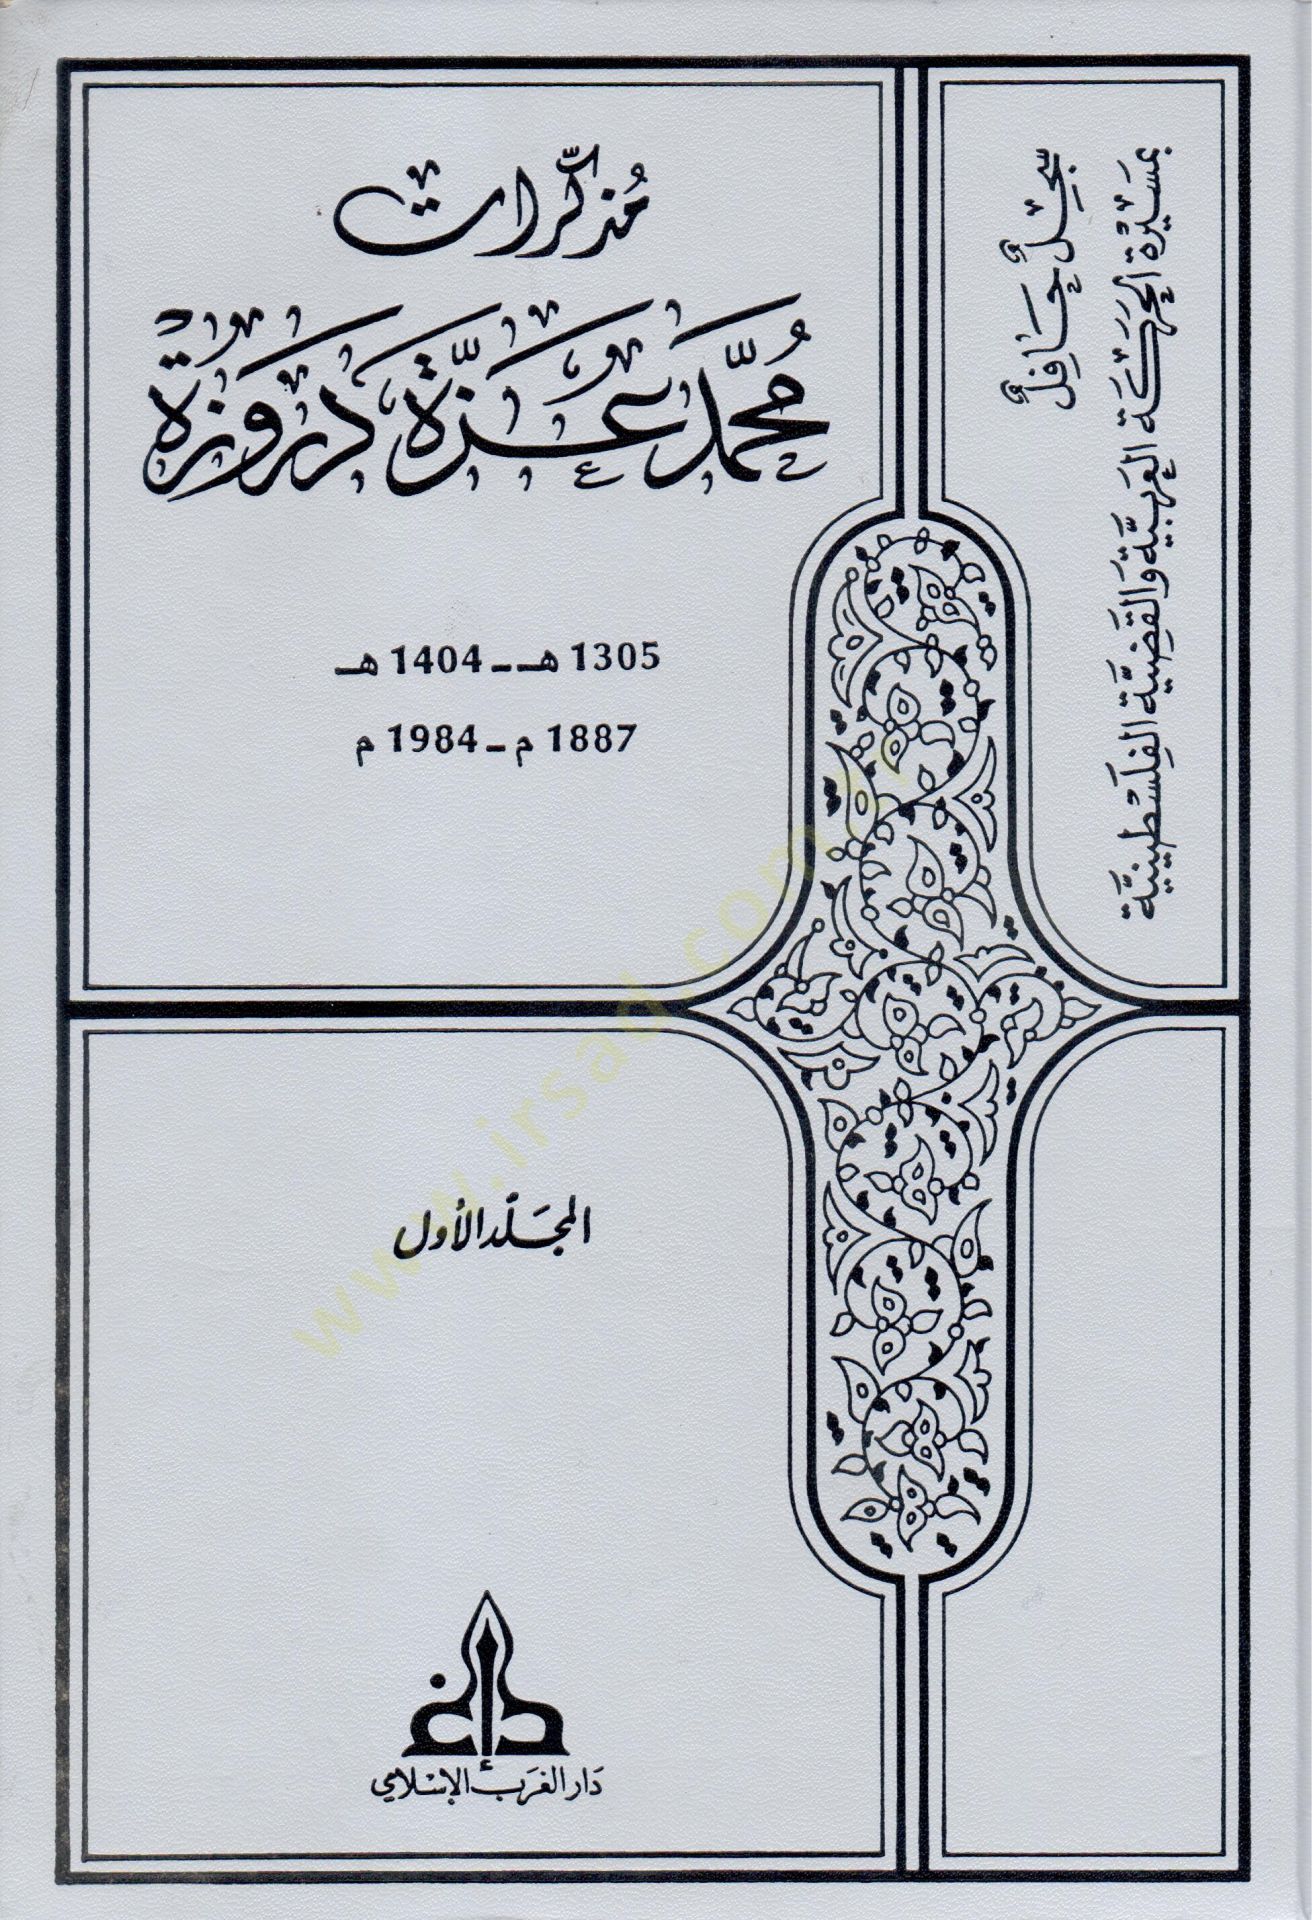 مُذكِّرات
مُحَمَّد عِزَّة دَرْوَزَة
1305 هـ - 1404 هـ
1887 م - 1984 م
سِجِلٌّ حَافِلٌ
بمَسِيْرَة الحَرَكَة العَرَبيَّة وَالقَضِيَّة الفِلَسْطِينيَّة
المجَلّد الأول
دَار الغَرب الإسْلامي
www.irsad.com